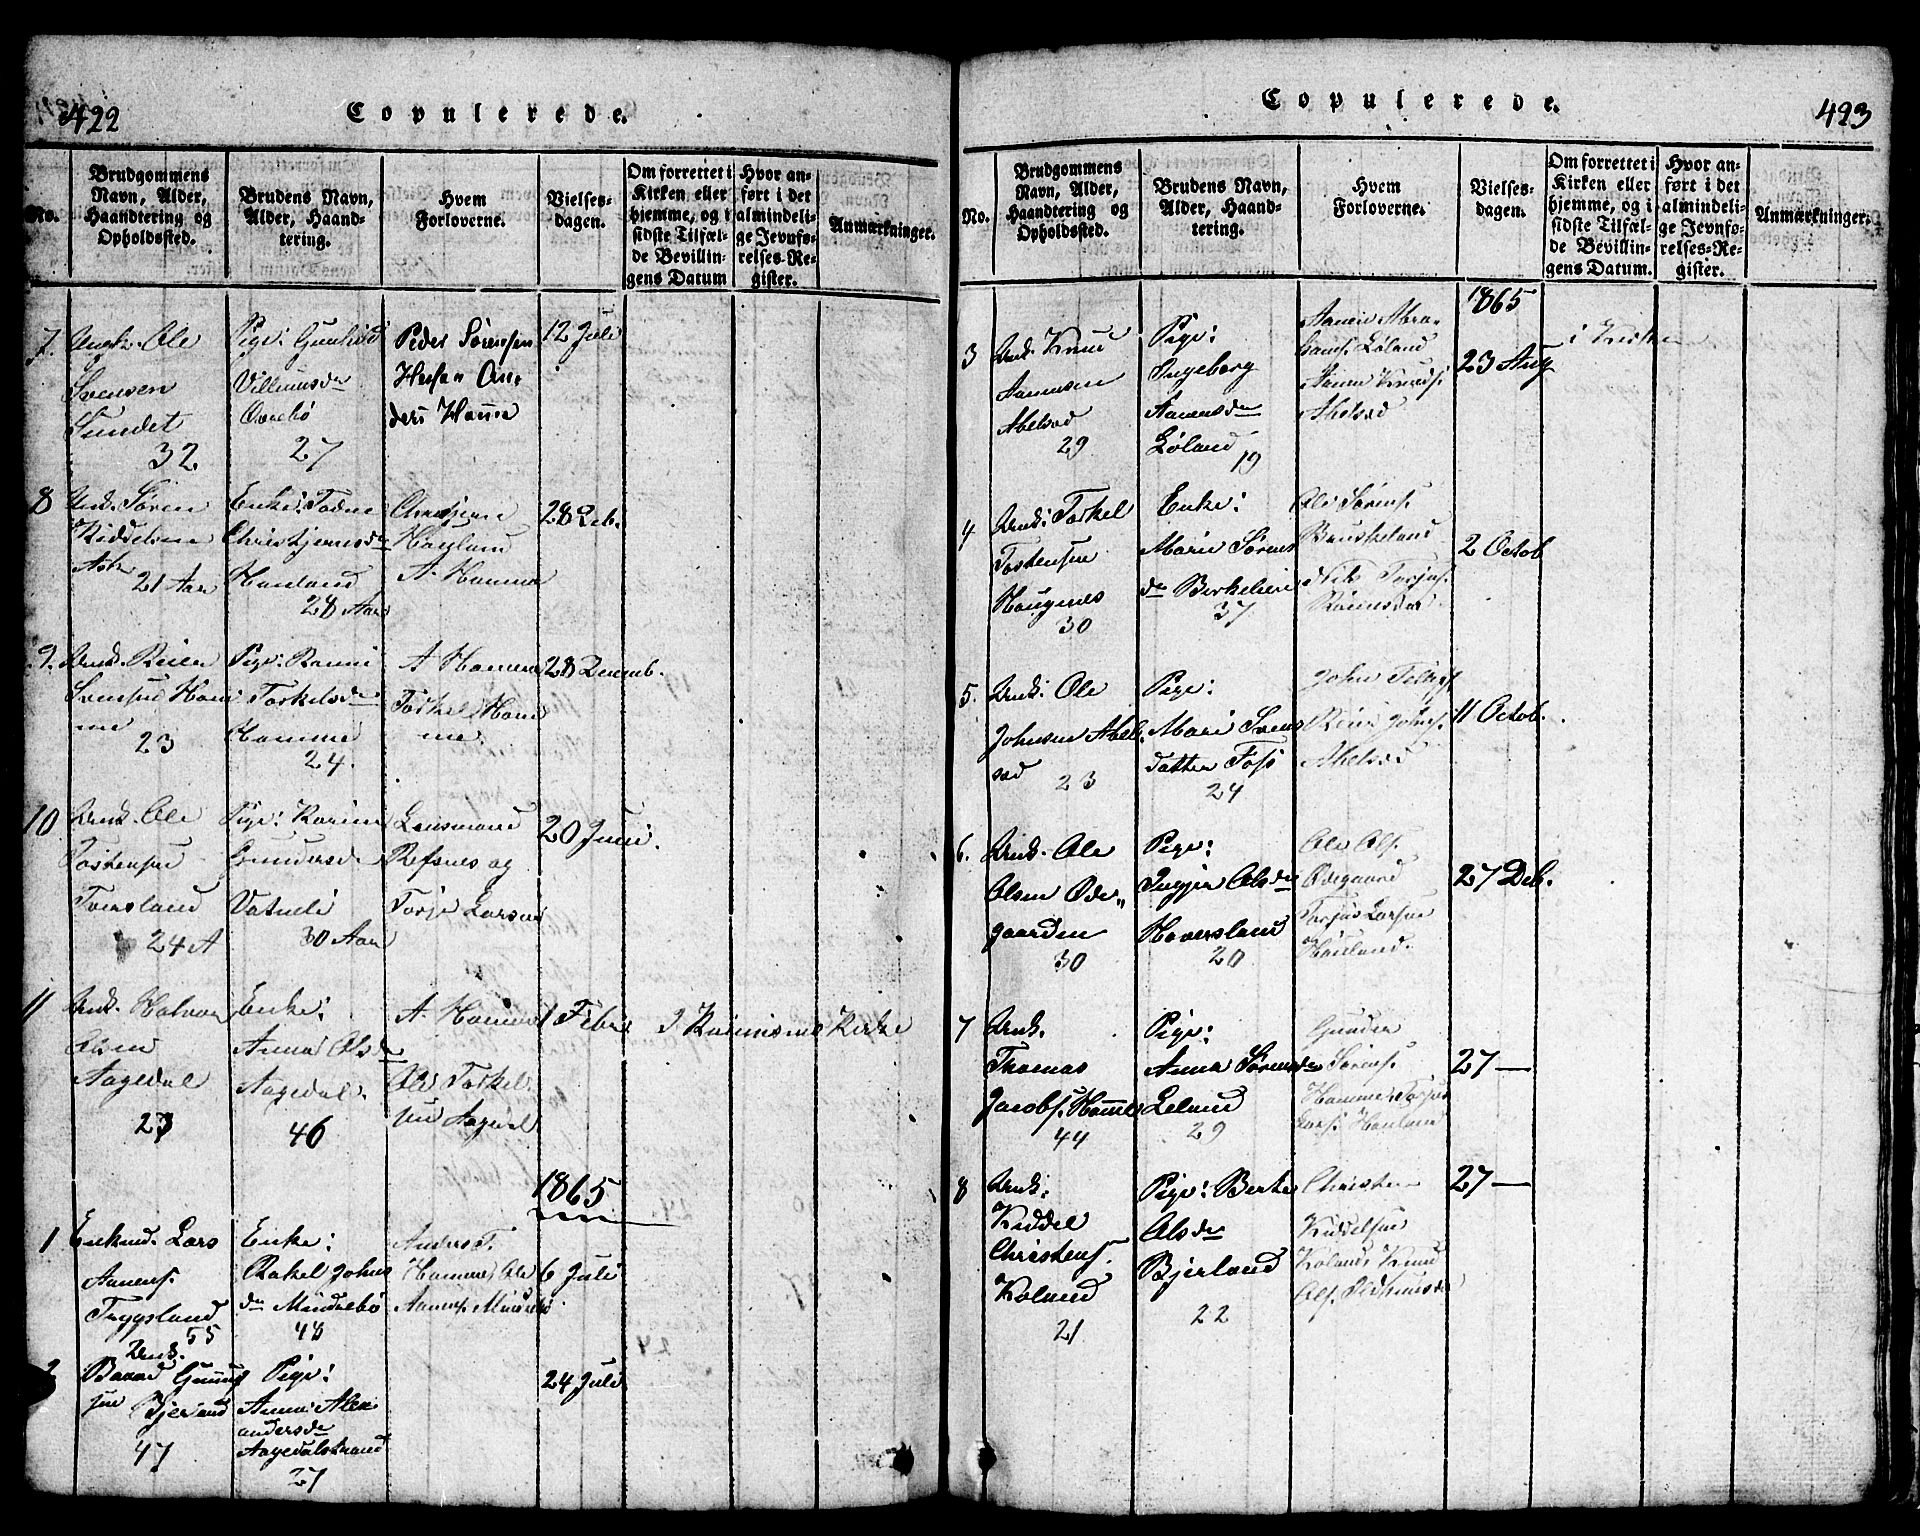 422
Copulerede.
No.
Brudgommens Navn, Alder, Haandtering og Opholdssted.
Brudens Navn, Alder, Haandtering.
Hvem Forloverne.
Vielsesdagen.
Om forrettet i Kirken eller hjemme, og i sidste Tilfælde Bevillingens Datum
Hvor anført i det almindelige Jevnførelses-Register.
Anmærkninger.
7.
Ungk. Ole
Svensen
Sundet
32
Pige: Gunhild
Villumsdr
Ovrebö
27
Peder Sörensen
An-
ders Homme
12 Juli
8
Ungk. Sören
Kiddelsen
Ask
21 Aar
Enke: Todne
Christjernsdr
Hauland
28 Aar
Hauland
A. Homme
28 Deb.
9.
Ungk. Reier
Svensen Hom
me
23
Pige: Ranni
Torkelsdr
Homme
24.
A Homme
Torkel Hom
me.
28 Decemb.
10
Ungk. Ole
Tostensen
24 A
Pige: Karine
Gundersdr
Vatneli
30 Aar
Lensmand
Refsnes og
Torje Larsen
20 Juni.
11
Ungk. Halvor
Olsen
Aagedal
23
Enke:
Anna Olsdr
Aagedal.
46
A. Homme
Ole Torkel
sen Aagedal
1 Febr
I Kirke
1865
1
Enkmd. Lars
Aanens.
Tryggsland
55
Enke:
Rakel Johns
dr Mindrebö
48
Anders T.
Homme Ole
Aanens. Mindrebö
6 Juli
Ungk.
Baard Gunuf
sen Bjerland
47
Pige:
Anna Alex
andersdr
Aagedalstrand
27
24 Juli
423
Copulerede.
No.
Brudgommens Navn, Alder, Haandtering og Opholdssted.
Brudens Navn, Alder, Haandtering.
Hvem Forloverne.
Vielsesdagen.
Om forrettet i Kirken eller hjemme, og i sidste Tilfælde Bevillingens Datum.
Hvor anført i det almindelige Jevnførelses-Register.
Anmærkninger.
1865
3
Ungk. Knud
Aanensen
Abelsod
29
Pige:
Ingeborg
Aanensdr
Löland
19
Aanen Abra-
hams. Löland
Aanen Knuds.
Abelsod
23 Aug
i Kirken
4
Ungk: Torkel
Tostensen
Haugenes
30
Enke:
Marie Sörens
dr Birkelien
37
Ole Sörens.
Torjus.
2 Octob
5.
Ungk. Ole
Johnsen Abel
sod
23
Pige:
Mari Svens
datter Foss
24
John
Johns.
Abelsod
11 Octob.
6.
Ungk. Ole
Olsen Öde-
gaarden
30
Pige:
Ingjer Olsdr
Haversland
20
Ole Ols.
Ödegaard
Torjus Larsen
Hauland.
27 Deb.
7
Ungk.
Thomas
Jacobs. Homme
44
Pige:
Anna Sörensdr
Leland
29
Gunder
Sörens.
Homme, Torjus
Lars. Hauland
27 —
8
Ungk.
Kiddel
Christens.
Röland
21
Pige: Berte
Olsdr
Bjerland
22
Christen
Kiddelsen
Röland, Knud
Ols.
27 —